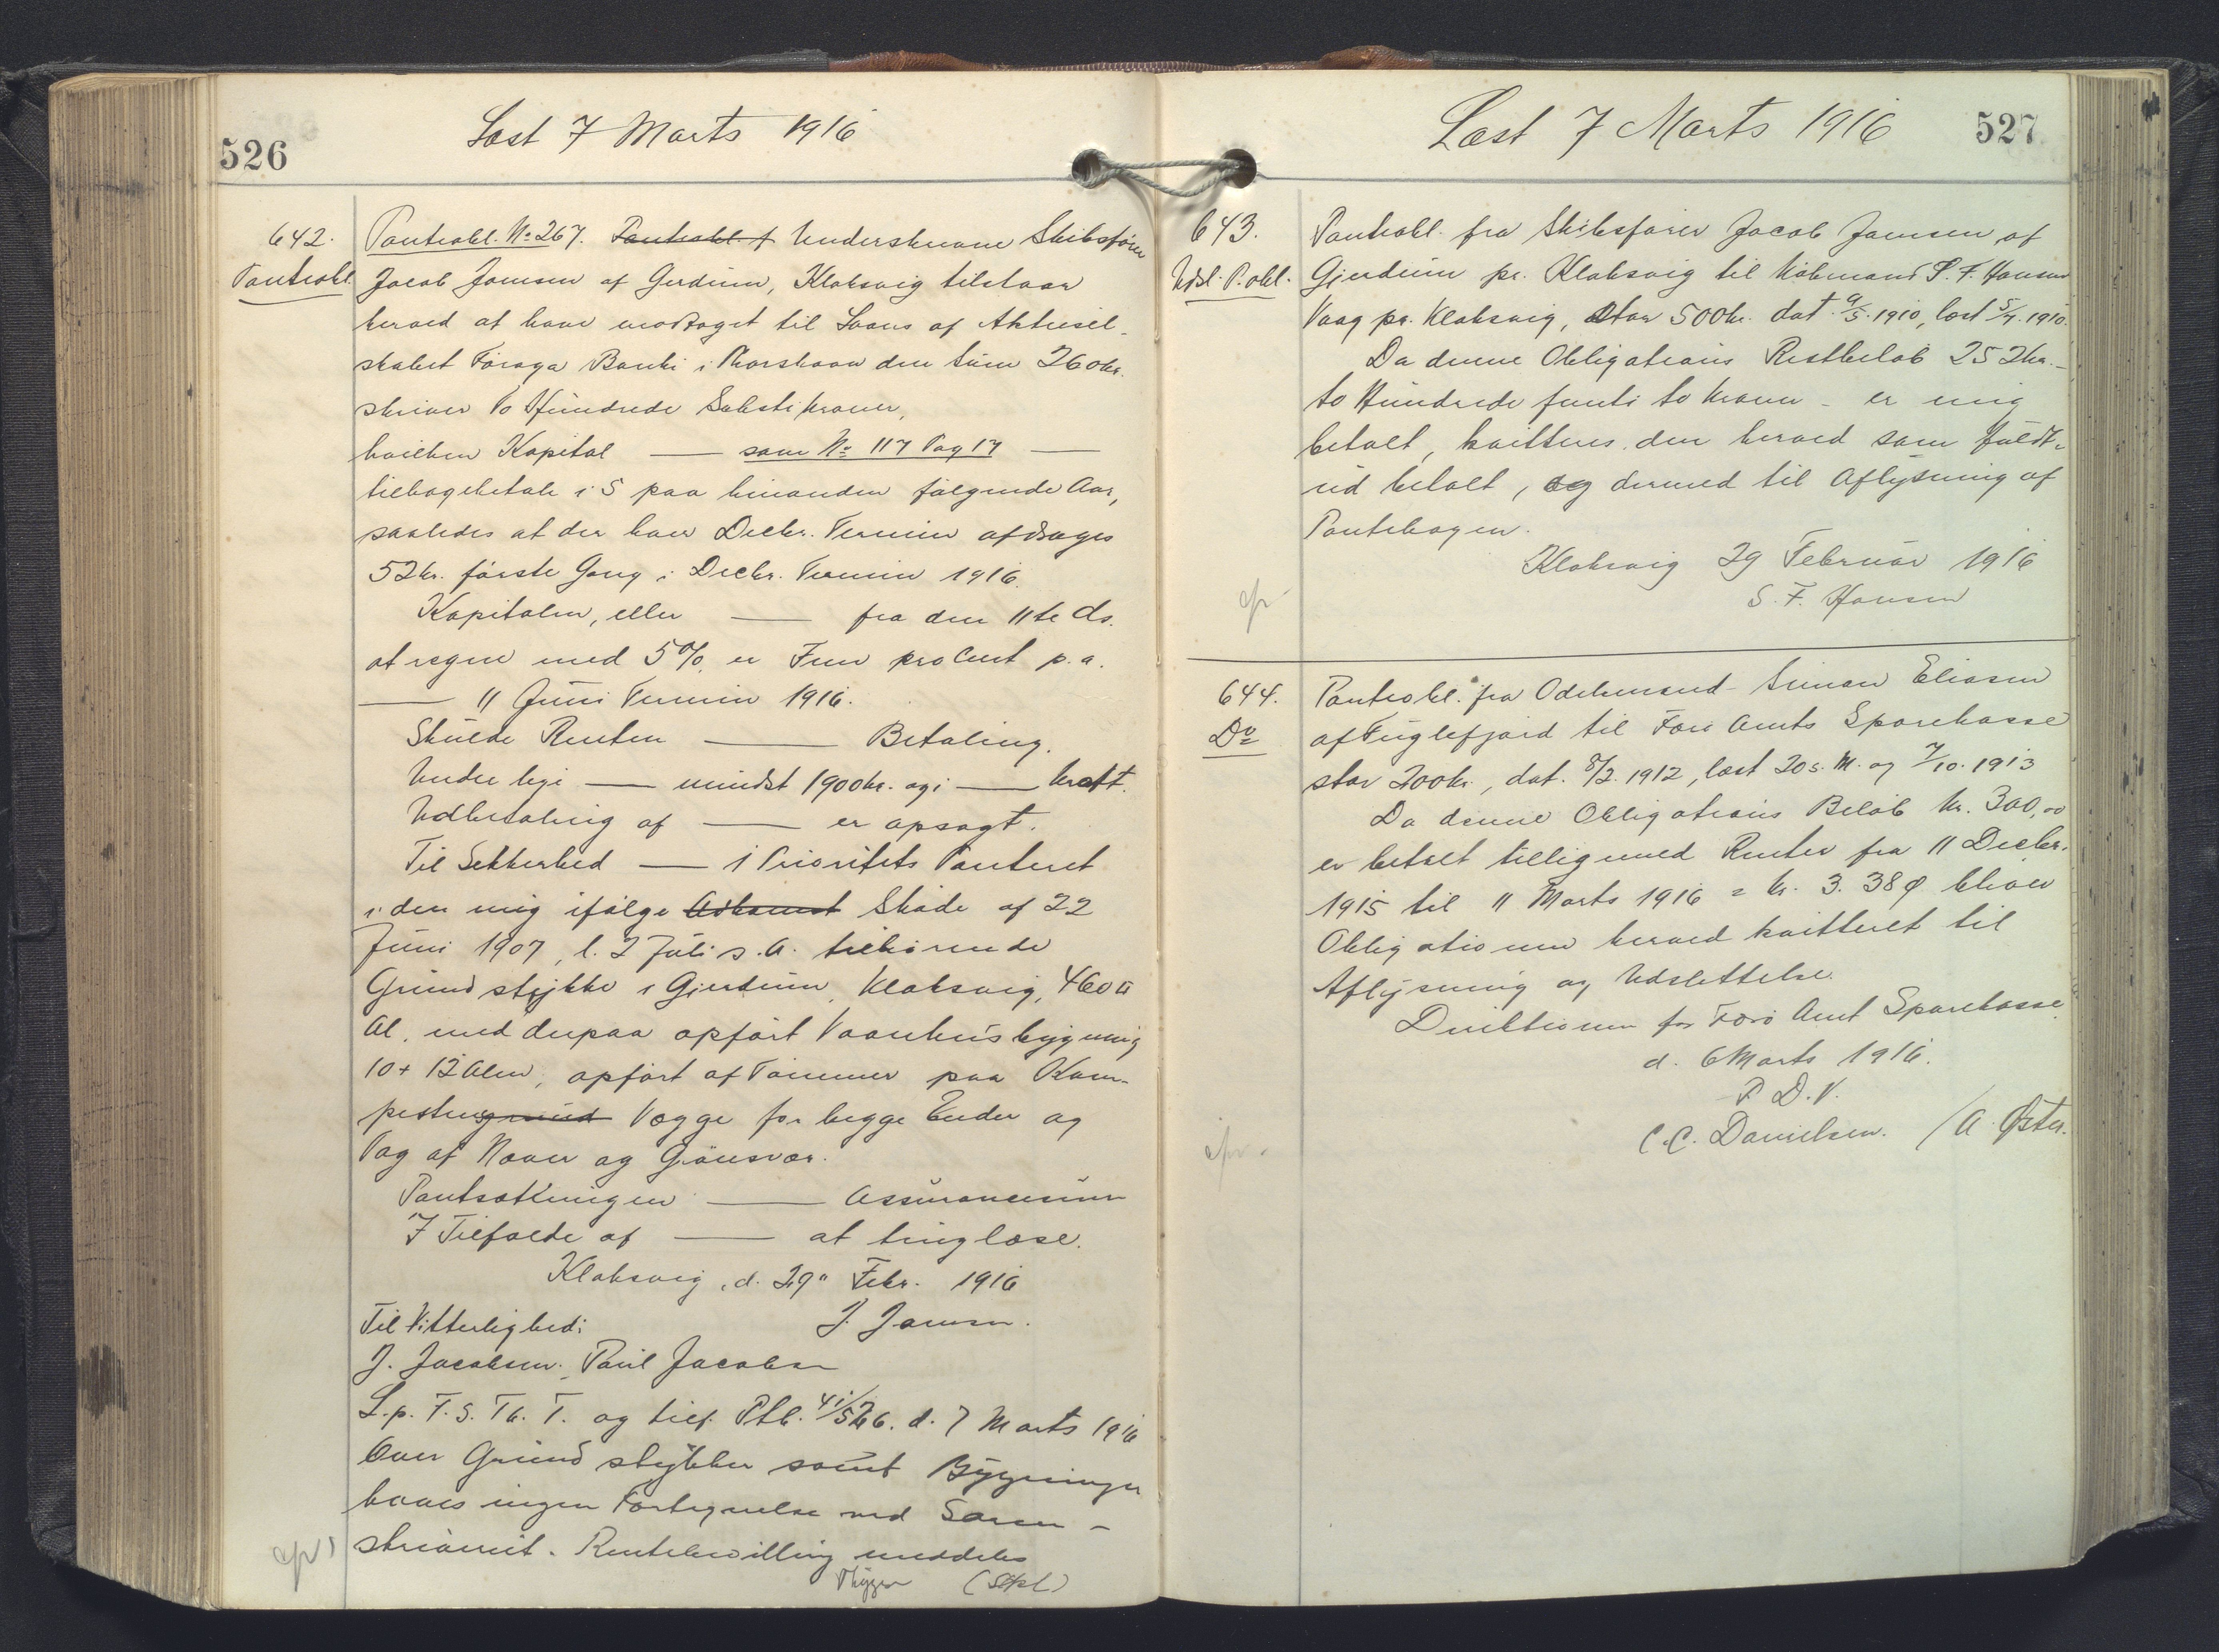 526
Læst 7 Marts 1916
642.
Panteobl.
Panteobl. No 267. Panteobl. f Underskrevne Skibsfører
Jacob Joensen af Gerdum, Klaksvig tilstaar
herved at have modtaget til Laans af Aktiesel-
skabet Føroya Banki i Thorshavn den Sum 260 kr.
skriver To Hundrede Seksti Kroner,
hvilken Kapital — som No 117 Pag 17 —
tilbagebetale i 5 paa hinanden følgende Aar,
saaledes at der hver Decbr. Termin afdrages
52 kr. første Gang i Decbr. Termin 1916.
Kapitalen, eller — fra den 11te ds.
at regne med 5%, er Fem pro Cent p.a.
— 11 Juni Termin 1916.
Skulde Renten — Betaling.
Under leje — mindst 1900 kr. og i — kraft.
Udbetaling af — er opsagt.
Til Sikkerhed — 1 Prioritets Panteret
i den mig ifølge Adkomst Skøde af 22
Juni 1907, l. 2 Juli s. A. tilhørende
Grundstykke i Gjerdum, Klaksvig, 460 □
Al. med derpaa opført Vaanhusbygning
10 + 12 Alen, opført af Tømmer paa Kam-
pestensgrund Vægge for begge Ender og
Tag af Næver og Grønsvær.
Pantsætningen — Assurancesum
I Tilfælde af — at tinglæse.
Klaksvig, d. 29" Febr. 1916
Til Vitterlighed: J. Joensen.
J. Jacobsen. Paul Jacobsen
L. p. F. S. Th. T. og tilf. Ptb. 41/526. d. 7 Marts 1916
Over Grundstykker samt Bygninger
haves ingen Fortegnelse ved Soren-
skriveriet. Rentebevilling meddeles
(Stpl)
527
Læst 7 Marts 1916
643.
Udsl. P. obl.
Panteobl. fra Skibsfører Jacob Joensen, af
Gjerdum pr. Klaksvig til Købmand S. F. Hansen
Vaag pr. Klaksvig, stor 500 kr. dat. 9/5. 1910, læst 5/7. 1910.
Da denne Obligations Restbeløb 252 kr. –
to Hundrede femti to Kroner – er mig
betalt, kvitteres den herved som fuldt
ud betalt, og dermed til Aflysning af
Pantebogen.
Klaksvig 29 Februar 1916
S. F. Hansen
644.
Do
Panteobl. fra Odelsmand Simon Eliasen
af Fuglefjord til Færø Amts Sparekasse
stor 200 kr., dat. 8/2. 1912, læst 20 s. M. og 7/10. 1913
Da denne Obligations Beløb kr. 300,00
er betalt tilligemed Renter fra 11 Decbr.
1915 til 11 Marts 1916 = kr. 3. 38 Ø bliver
Obligationen herved kvitteret til
Aflysning og Udslettelse.
Direktionen for Færø Amt Sparekasse
d. 6 Marts 1916.
P. D. V.
C. C. Danielsen. / A. Øster.